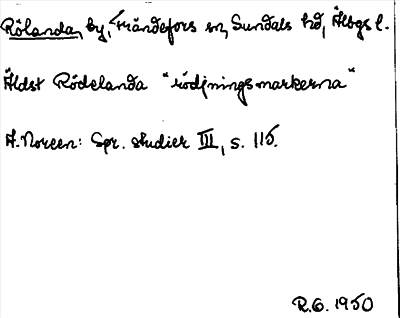 Rölanda, by, Frändefors sn, Sundals hd, Älvsgs l.
Äldst Rödelanda "rödjningsmarkerna"
A. Noreen: Spr. studier III, s. 115.
R.G. 1950